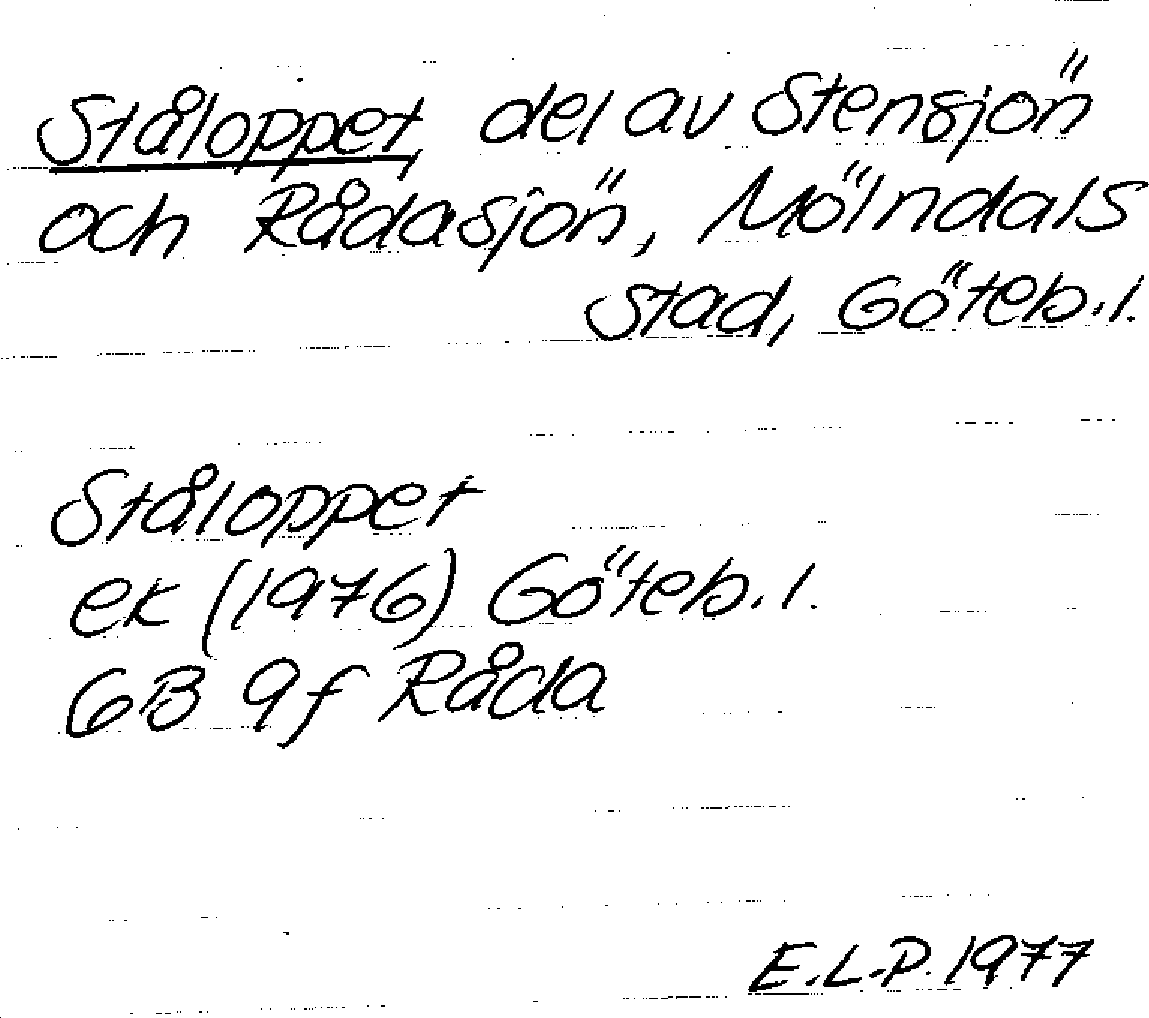 Ståloppet, del av Stensjön
och Rådasjön, Mölndals
stad, Göteb.l.
Ståloppet
ek (1976) Göteb.l.
6B 9f Råda
E.L-P. 1977